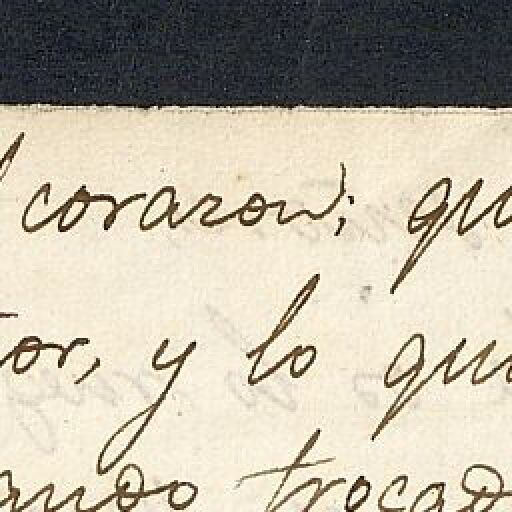 l corazon; qu
tor, y lo qu
ando trocad